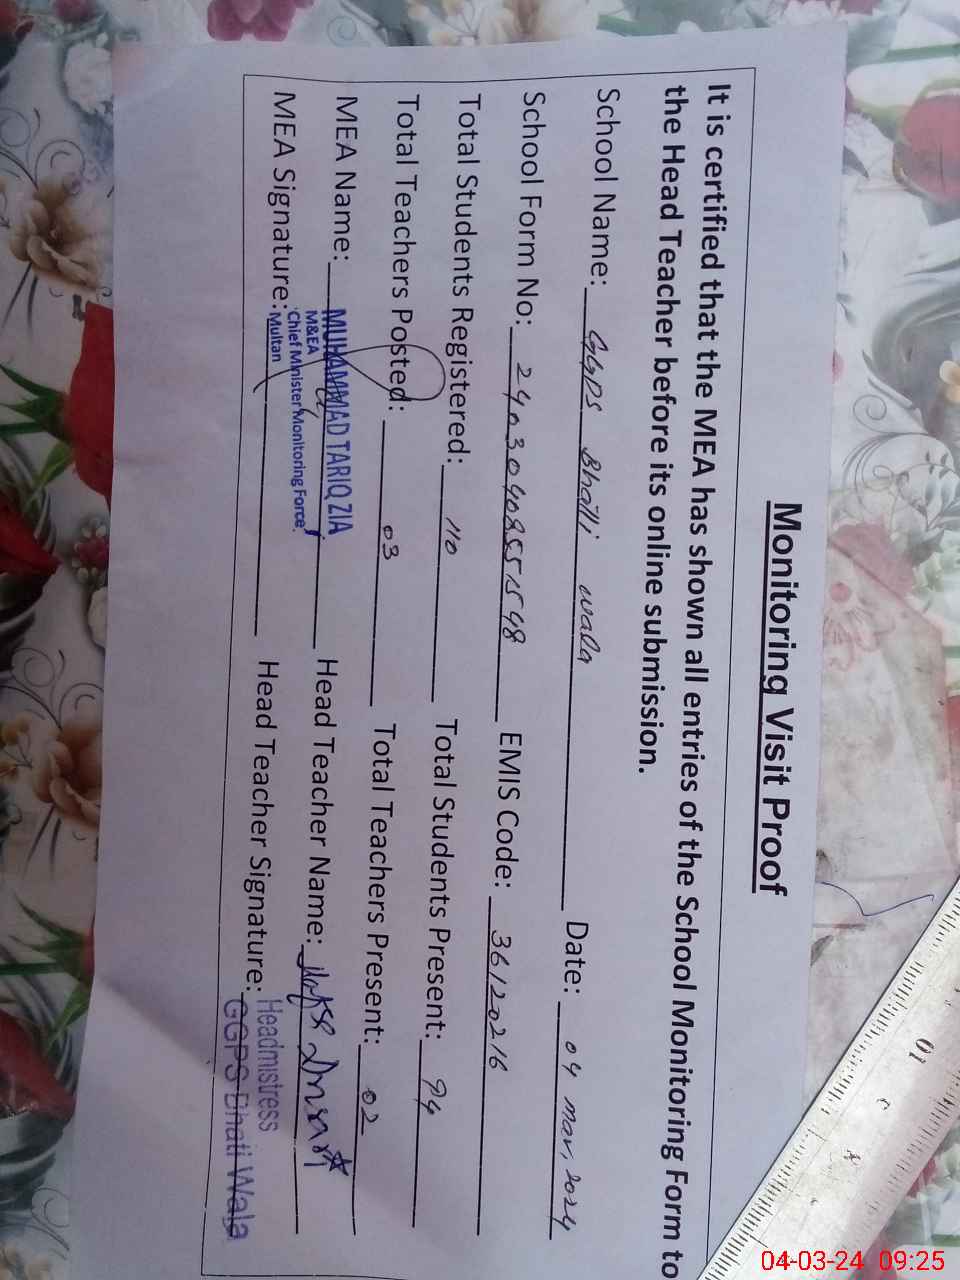 Monitoring Visit Proof
It is certified that the MEA has shown all entries of the School Monitoring Form to
the Head Teacher before its online submission.
School Name: GGPS Bhatti wala Date: 04 mar, 2024
School Form No: 24030408551548 EMIS Code: 36120216
Total Students Registered: 110 Total Students Present: 94
Total Teachers Posted: 03 Total Teachers Present: 02
MEA Name: MUHAMMAD TARIQ ZIA Head Teacher Name:
M&EA
Chief Minister Monitoring Force,
MEA Signature: Multan Head Teacher Signature: Headmistress
GGPS Bhati Wala
10
04-03-24 09:25